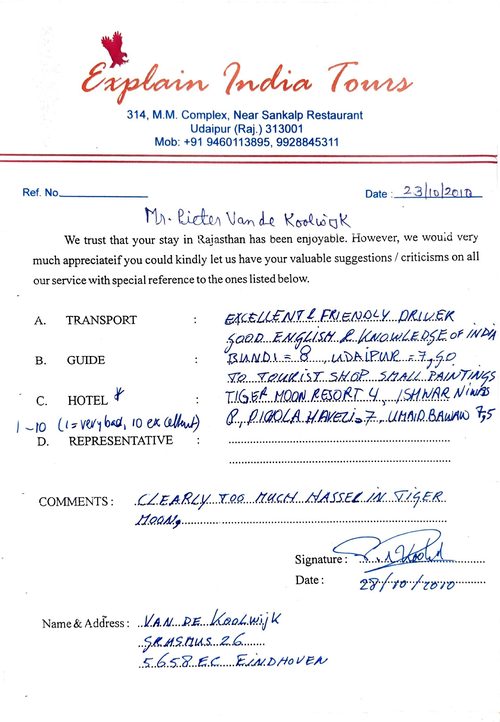 Explain India Tours
314, M.M. Complex, Near Sankalp Restaurant
Udaipur (Raj.) 313001
Mob: +91 9460113895, 9928845311
Ref. No. Date : 23/10/2010
Mr. Pieter Van de Koolwijk
We trust that your stay in Rajasthan has been enjoyable. However, we would very
much appreciateif you could kindly let us have your valuable suggestions / criticisms on all
our service with special reference to the ones listed below.
A. TRANSPORT : EXCELLENT & FRIENDLY DRIVER
GOOD ENGLISH & KNOWLEDGE OF INDIA
B. GUIDE : BUNDI = 8, UDAIPUR = 7, GO
TO TOURIST SHOP SMALL PAINTINGS
C. HOTEL * : TIGER MOON RESORT 4, ISHWAR NIWAS
1-10 (1 = very bad, 10 excellent) 8, PIGOLA HAVELI = 7, UMAID BAWAN 7,5
D. REPRESENTATIVE :
COMMENTS : CLEARLY TOO MUCH HASSEL IN TIGER
MOON,
Signature :
Date : 28/10/2010
Name & Address : VAN DE KOOLWIJK
ERASMUS 26
5658 EC EINDHOVEN